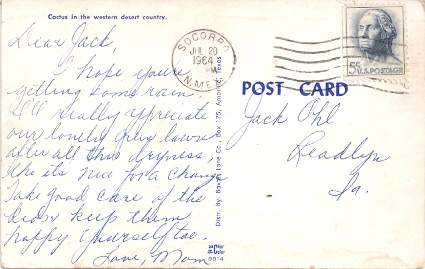 Cactus in the western desert country.
Dear Jack,
I hope you're
getting some rain,
I'll really appreciate
our lovely green lawn
after all this dryness,
tho its nice for a change
Take good care of the
kids & keep them
happy & yourself too.
Love, Mom
SOCORRO
JUL 20
1964
PM
N. MEX
5¢ U.S. POSTAGE
POST CARD
Jack Ohl
Readlyn
Ia.
Distr. By: Baxter Lane Co., Box 175, Amarillo, Texas